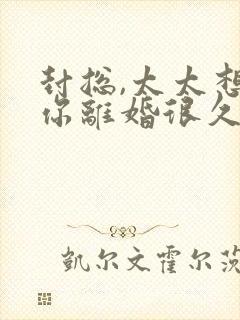 封总,太太想
你離婚很久
凱尔文霍尔茨